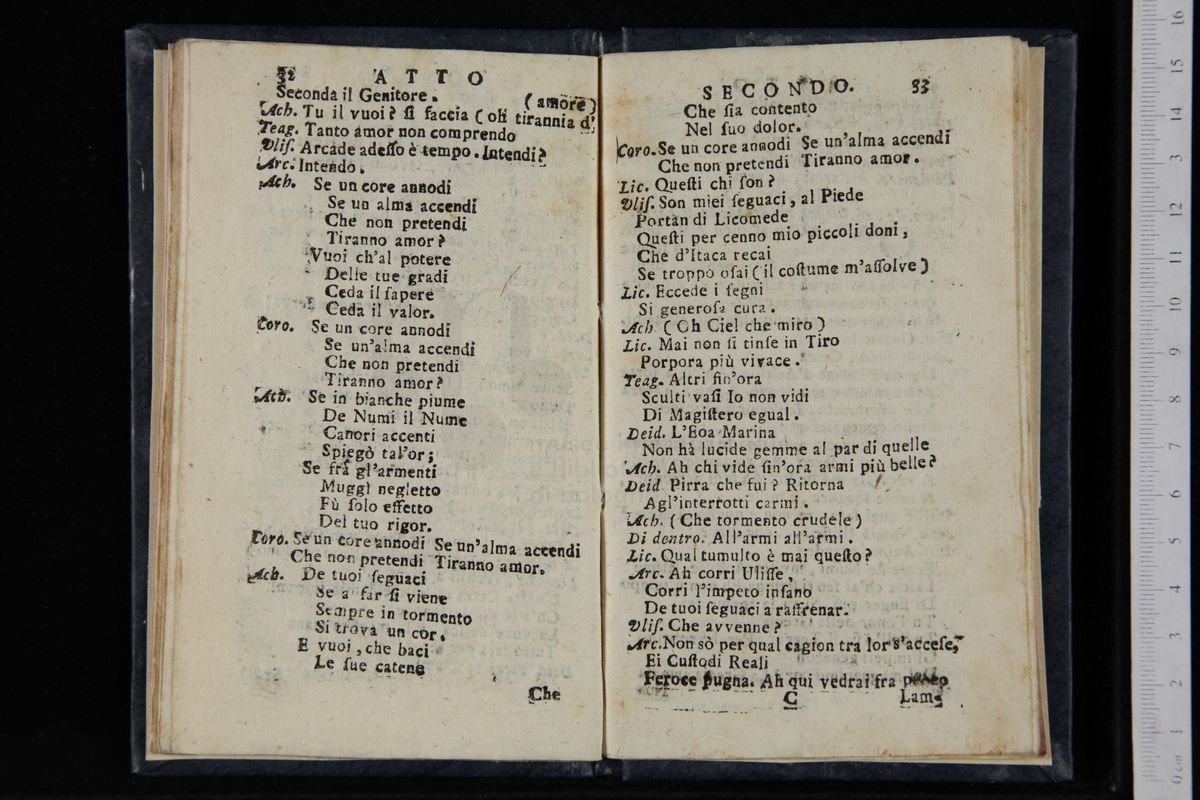 32 ATTO
Seconda il Genitore. (amore)
Ach. Tu il vuoi? ſi faccia (oh tirannia d'
Teag. Tanto amor non comprendo
Vliſ. Arcade adeſſo è tempo. Intendi?
Arc. Intendo.
Ach. Se un core annodi
Se un alma accendi
Che non pretendi
Tiranno amor?
Vuoi ch'al potere
Delle tue gradi
Ceda il ſapere
Ceda il valor.
Coro. Se un core annodi
Se un'alma accendi
Che non pretendi
Tiranno amor?
Ach. Se in bianche piume
De Numi il Nume
Canori accenti
Spiegò tal'or;
Se frà gl'armenti
Muggì negletto
Fù ſolo effetto
Del tuo rigor.
Coro. Se un core annodi Se un'alma accendi
Che non pretendi Tiranno amor.
Ach. De tuoi ſeguaci
Se a far ſi viene
Sempre in tormento
Si trova un cor.
E vuoi, che baci
Le ſue catene
Che
SECONDO. 33
Che ſia contento
Nel ſuo dolor.
Coro. Se un core annodi Se un'alma accendi
Che non pretendi Tiranno amor.
Lic. Queſti chi ſon?
Vliſ. Son miei ſeguaci, al Piede
Portan di Licomede
Queſti per cenno mio piccoli doni,
Che d'Itaca recai
Se troppo oſai (il coſtume m'aſſolve)
Lic. Eccede i ſegni
Sì generoſa cura.
Ach (Oh Ciel che miro)
Lic. Mai non ſi tinſe in Tiro
Porpora più vivace.
Teag. Altri fin'ora
Sculti vaſi Io non vidi
Di Magiſtero egual.
Deid. L'Eoa Marina
Non hà lucide gemme al par di quelle
Ach. Ah chi vide ſin'ora armi più belle?
Deid. Pirra che fui? Ritorna
Agl'interrotti carmi.
Ach. (Che tormento crudele)
Di dentro. All'armi all'armi.
Lic. Qual tumulto è mai queſto?
Arc. Ah corri Uliſſe,
Corri l'impeto inſano
De tuoi ſeguaci a raffrenar.
Vliſ. Che avvenne?
Arc. Non sò per qual cagion tra lor s'acceſe,
Ei Cuſtodi Reali
Feroce pugna. Ah qui vedrai fra poco
C Lam-